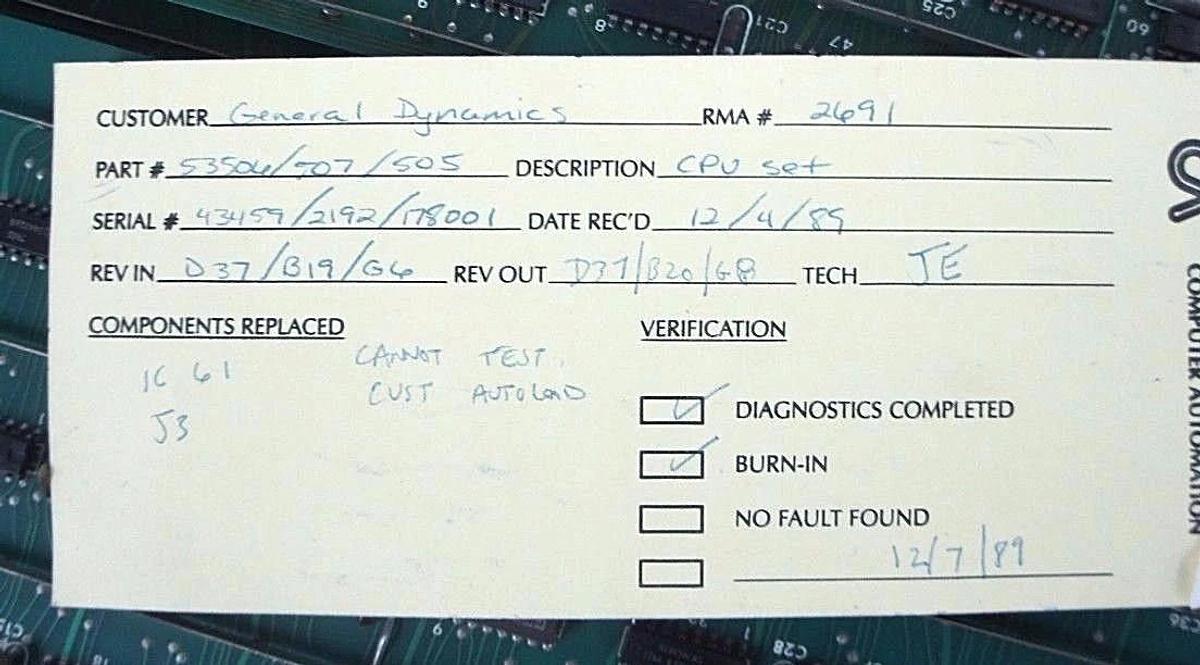 CUSTOMER General Dynamics RMA # 2691
PART # 53506/507/505 DESCRIPTION CPU set
SERIAL # 43459/2192/178001 DATE REC'D 12/4/89
REV IN D37/B19/G6 REV OUT D37/B20/G8 TECH JE
COMPONENTS REPLACED VERIFICATION
IC 61 CANNOT TEST.
CUST AUTOLOAD
J3
DIAGNOSTICS COMPLETED
BURN-IN
NO FAULT FOUND
12/7/89
COMPUTER AUTOMATION
C21
C25
47
60
8
9
9
C28